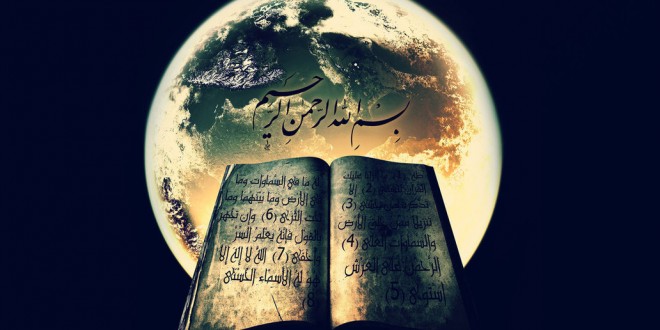 بِسْمِ اللهِ الرَّحمنِ الرَّحيمِ
عليك
(2) إلا
(3)
تنزيلا ممن الأرض
والسماوات العلى (4)
الرحمن على العرش
استوى (5)
ما في السماوات وما
في الأرض وما بينهما وما
تحت الثرى (6) وإن تجهر
بالقول فإنه يعلم السر
وأخفى (7) الله لا إله إلا
هو له الأسماء الحسنى
8)